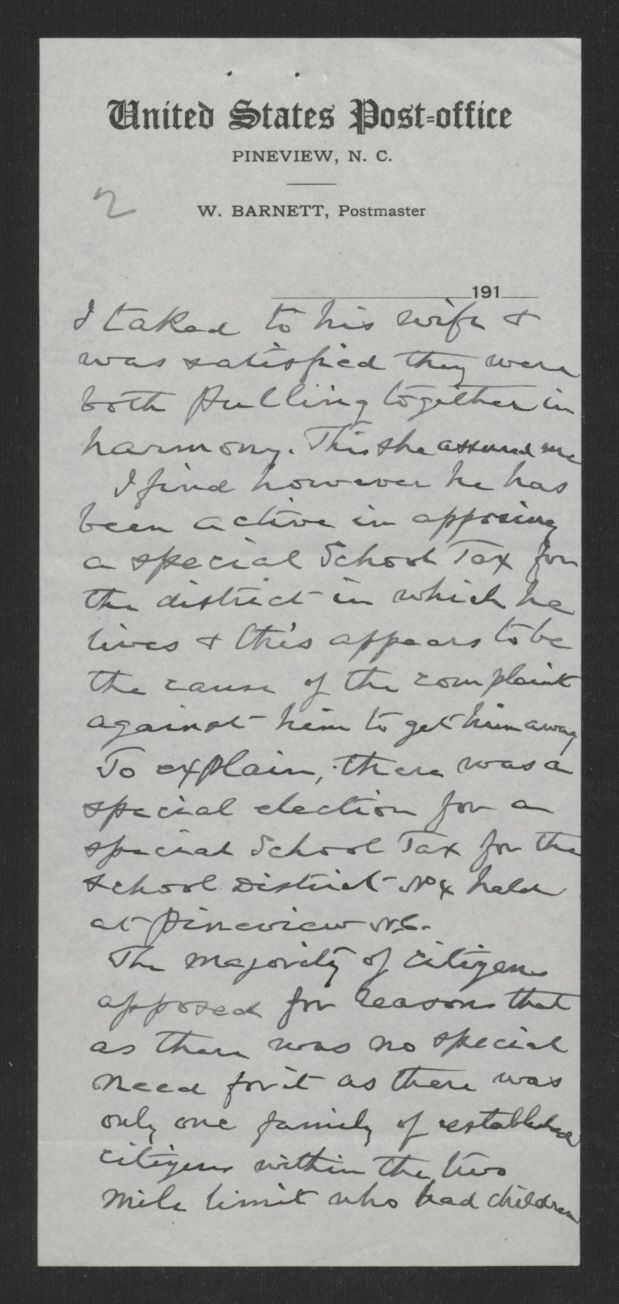 United States Post-office
PINEVIEW, N. C.
2
W. BARNETT, Postmaster
191
I taked to his wife &
was satisfied they were
both pulling together in
harmony. This she assured me
I find however he has
been active in apposing
a special School Tax for
the district in which he
lives & this appears to be
the cause of the complaint
against him to get him away
To explain, there was a
special election for a
special School Tax for the
School District No 4 held
at Pineview N.C.
The majority of citizens
apposed for reasons that
as there was no special
need for it as there was
only one family of established
citizens within the two
mile limit who had children